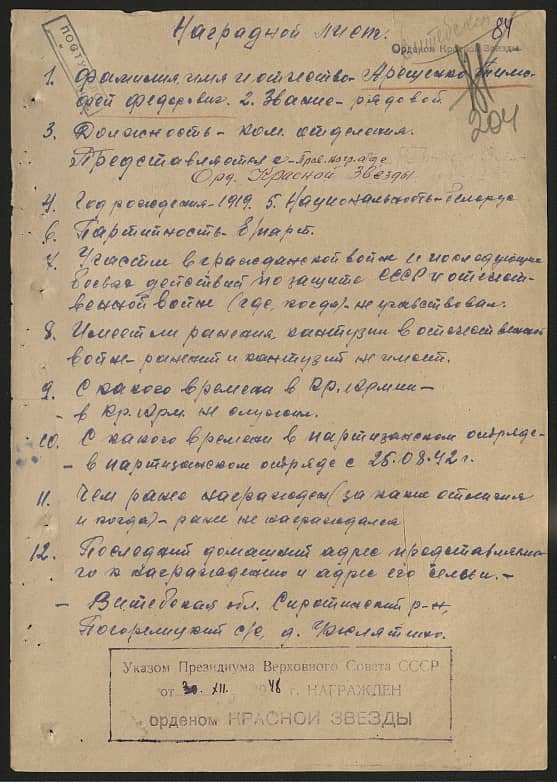 84
Витебская
Наградной лист.
Орденом Красной Звезды
ПОСТУПИЛО
204
1. Фамилия, имя и отчество - Арещенко Тимо-
фей Федорович. 2. Звание - рядовой.
3. Должность - ком. отделения.
Представляется к - прав. награде
Орд. Красной Звезды
4. Год рождения - 1919. 5. Национальность - белорус
6. Партийность - б/парт.
7. Участие в гражданской войн и последующих
боевых действий по защите СССР и отечест-
венной войн (где, когда) - не участвовал.
8. Имеет ли ранения, контузии в отечественной
войне - ранений и контузий не имеет.
9. С какого времени в Кр. Армии -
- в Кр. Арм. не служил.
10. С какого времени в партизанском отряде -
- в партизанском отряде с 25.08.42 г.
11. Чем ранее награжден (за какие отличия
и когда) - ранее не награждался
12. Последний домашний адрес представляемо-
го к награждению и адрес его семьи. -
- Витебская обл. Сиротинский р-н,
Погорелицкий с/с, д.
Указом Президиума Верховного Совета СССР
от 30. XII. 1948 г. НАГРАЖДЕН
орденом КРАСНОЙ ЗВЕЗДЫ